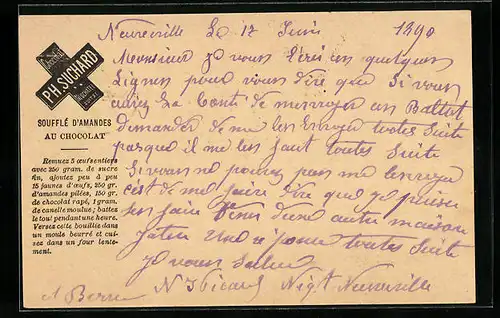 CHOCOLAT
PH. SUCHARD
NEUCHATEL
SUISSE
SOUFFLÉ D'AMANDES
AU CHOCOLAT
Remuez 5 œufs entiers
avec 250 gram. de sucre
fin, ajoutez peu à peu
15 jaunes d'œufs, 250 gr.
d'amandes pilées, 150 gr.
de chocolat rapé, 1 gram.
de canelle moulue; battez
le tout pendant une heure.
Versez cette bouillie dans
un moule beurré et cui-
sez dans un four lente-
ment.
Neuveville Le 17 Juin 1890
Monsieur Je vous Écris un quelques
Lignes pour vous dire que Si vous
La Bonté de un Ballot
demander de me les Envoyer toutes Suite
parsque il me les faut toutes Suite
Si vous ne pouvez pas me les
c'est de me faire dire que je puisse
les faire Venir d'une autre maison
Jatten Une réponse toutes Suite
Je vous Salue
a Berne N Nigt Neuveville